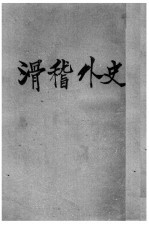 滑稽外史